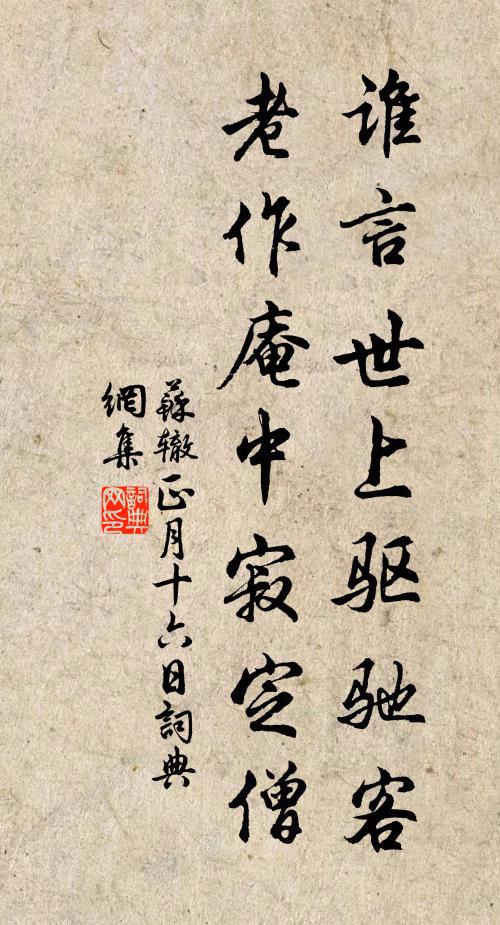 谁言世上驱驰客
老作庵中寂定僧
蘇辙正月十六日詞典
網集
詞典
网印